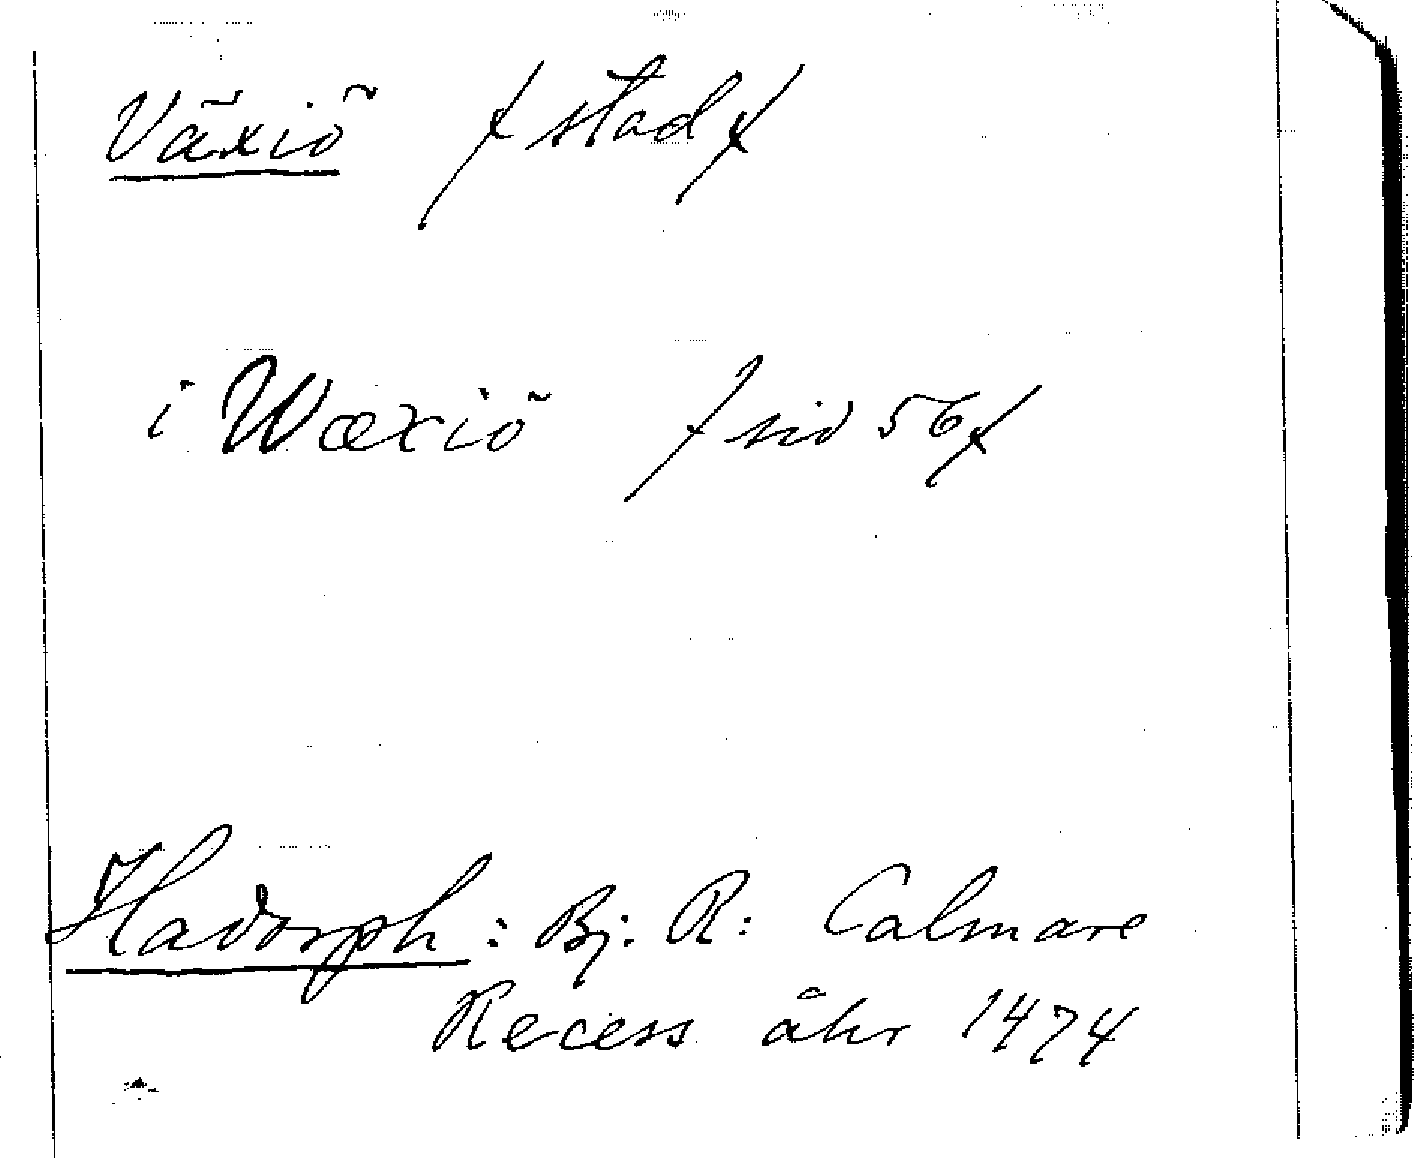 Växiö / stad /
i Wæxiö / sid 56 /
Hadorph: Bj. R: Calmare
Recess åhr 1474